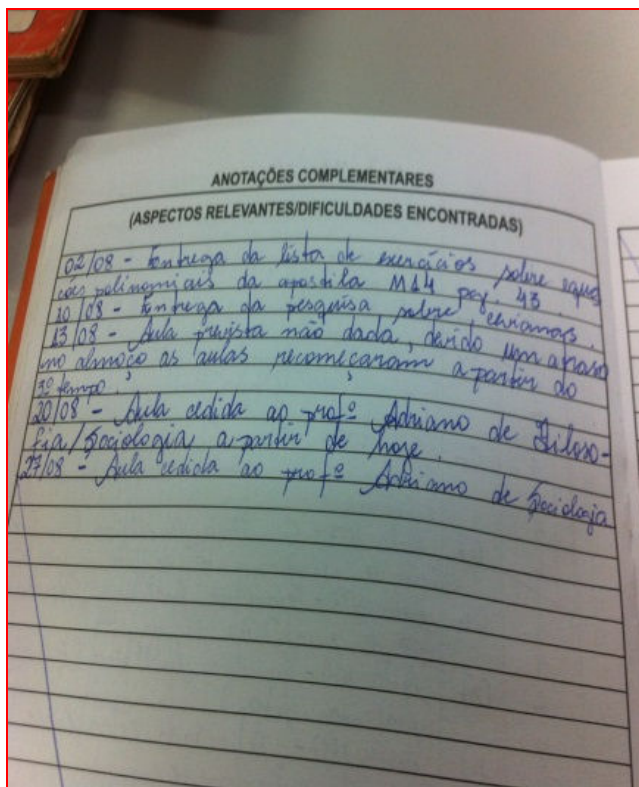 ANOTAÇÕES COMPLEMENTARES
(ASPECTOS RELEVANTES/DIFICULDADES ENCONTRADAS)
02/08 - Entrega da lista de exercícios sobre equa
ções polinomiais da apostila M14 pag. 43.
10/08 - Entrega da pesquisa sobre cevianas.
13/08 - Aula prevista não dada, devido um atraso
no almoço as aulas recomeçaram a partir do
3º tempo.
20/08 - Aula cedida ao profº Adriano de Filoso-
fia/Sociologia a partir de hoje.
27/08 - Aula cedida ao profº Adriano de Sociologia